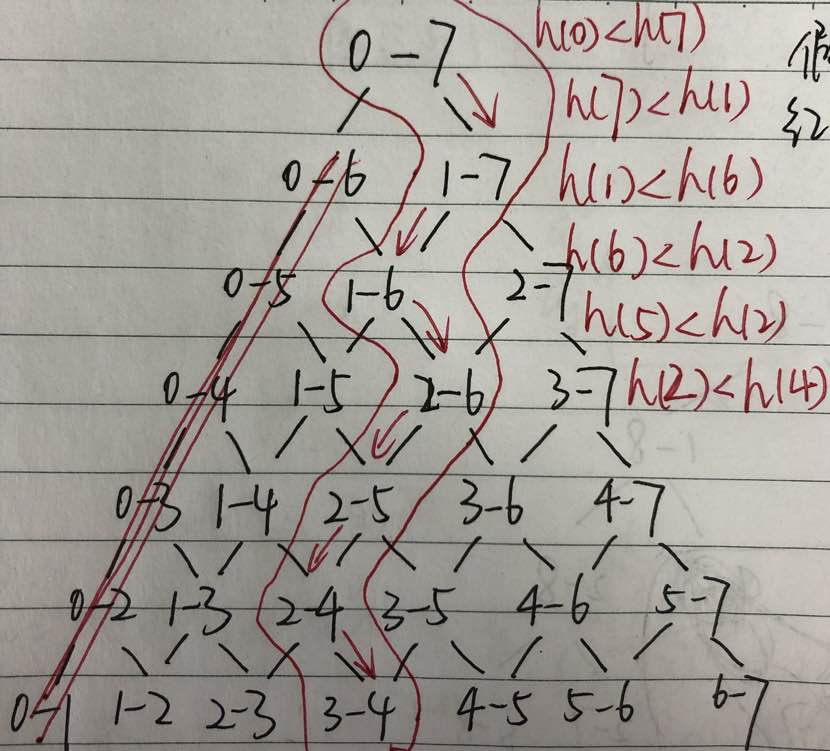 0-7 h(0)<h(7)
h(7)<h(1)
0-6 1-7 h(1)<h(6)
h(6)<h(2)
0-5 1-6 2-7
h(5)<h(2)
0-4 1-5 2-6 3-7 h(2)<h(4)
0-3 1-4 2-5 3-6 4-7
0-2 1-3 2-4 3-5 4-6 5-7
0-1 1-2 2-3 3-4 4-5 5-6 6-7